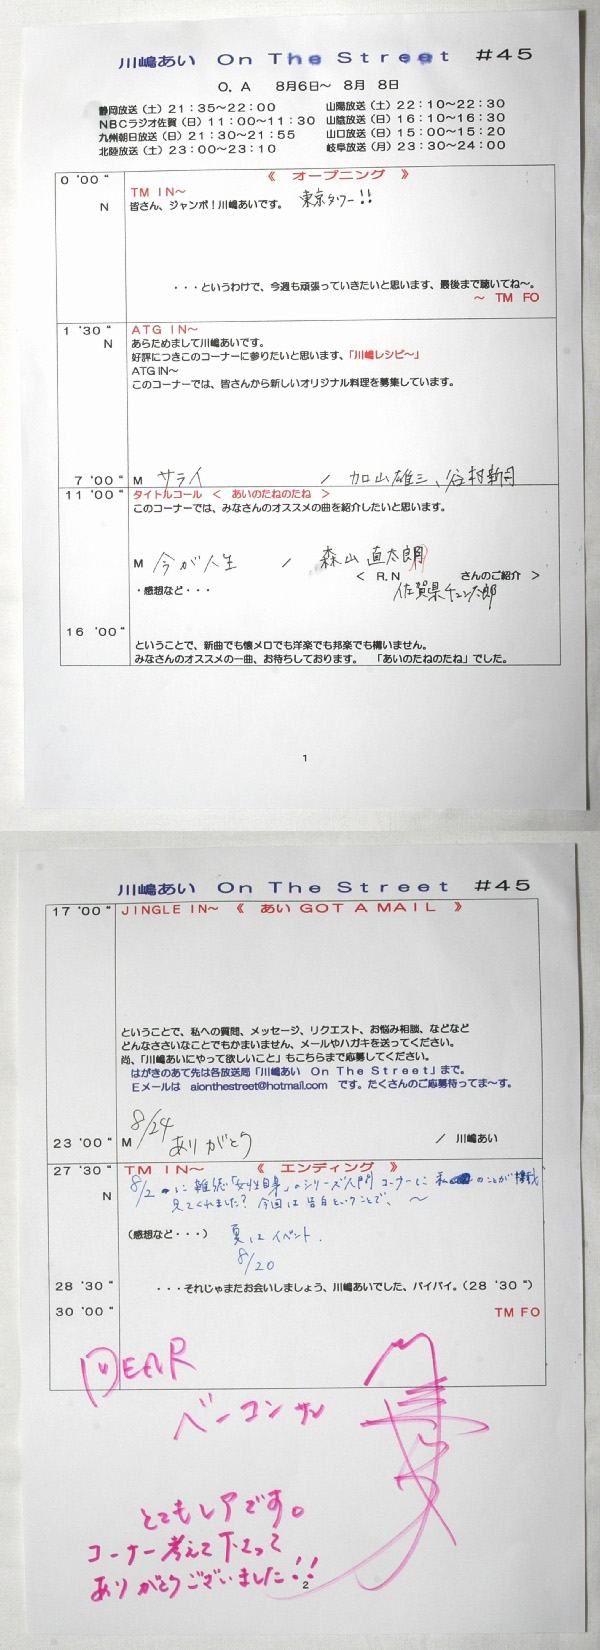 川嶋あい Ｏｎ Ｔｈｅ Ｓｔｒｅｅｔ ＃４５
Ｏ．Ａ ８月６日～ ８月 ８日
静岡放送（土）２１：３５～２２：００ 山陽放送（土）２２：１０～２２：３０
ＮＢＣラジオ佐賀（日）１１：００～１１：３０ 山陰放送（日）１６：１０～１６：３０
九州朝日放送（日）２１：３０～２１：５５ 山口放送（日）１５：００～１５：２０
北陸放送（土）２３：００～２３：１０ 岐阜放送（月）２３：３０～２４：００
０ ’００“ 《 オープニング 》
ＴＭ ＩＮ～
Ｎ 皆さん、ジャンボ！川嶋あいです。 東京タワー!!
・・・というわけで、今週も頑張っていきたいと思います、最後まで聴いてね～。
～ ＴＭ ＦＯ
１ ’３０“ ＡＴＧ ＩＮ～
Ｎ あらためまして川嶋あいです。
好評につきこのコーナーに参りたいと思います、「川嶋レシピ～」
ＡＴＧ ＩＮ～
このコーナーでは、皆さんから新しいオリジナル料理を募集しています。
７ ’００“ Ｍ サライ ／ 加山雄三、谷村新司
１１ ’００“ タイトルコール ＜ あいのたねのたね ＞
このコーナーでは、みなさんのオススメの曲を紹介したいと思います。
Ｍ 今が人生 ／ 森山直太朗
＜ Ｒ．Ｎ さんのご紹介 ＞
・感想など・・・ 佐賀県チェン太郎
１６ ’００“
ということで、新曲でも懐メロでも洋楽でも邦楽でも構いません。
みなさんのオススメの一曲、お待ちしております。 「あいのたねのたね」でした。
1
川嶋あい Ｏｎ Ｔｈｅ Ｓｔｒｅｅｔ ＃４５
１７ ’００“ ＪＩＮＧＬＥ ＩＮ～ 《 あい ＧＯＴ Ａ ＭＡＩＬ 》
ということで、私への質問、メッセージ、リクエスト、お悩み相談、などなど
どんなささいなことでもかまいません、メールやハガキを送ってください。
尚、「川嶋あいにやって欲しいこと」もこちらまで応募してください。
はがきのあて先は各放送局「川嶋あい Ｏｎ Ｔｈｅ Ｓｔｒｅｅｔ」まで。
Ｅメールは aionthestreet@hotmail.com です。たくさんのご応募待ってま～す。
8/24
２３ ’００“ Ｍ ありがとう ／ 川嶋あい
２７ ’３０“ ＴＭ ＩＮ～ 《 エンディング 》
8/2 に雑誌「女性自身」のシリーズ人間コーナーに私のことが掲載
Ｎ 見てくれました？今回は告白ということで、～
（感想など・・・） 夏はイベント.
8/20
２８ ’３０“ ・・・それじゃまたお会いしましょう、川嶋あいでした、バイバイ。（２８ ’３０“）
３０ ’００“ ＴＭ ＦＯ
DEAR
ベーコンサン
とてもレアです。
コーナー考えて下さって
ありがとうございました!!
2